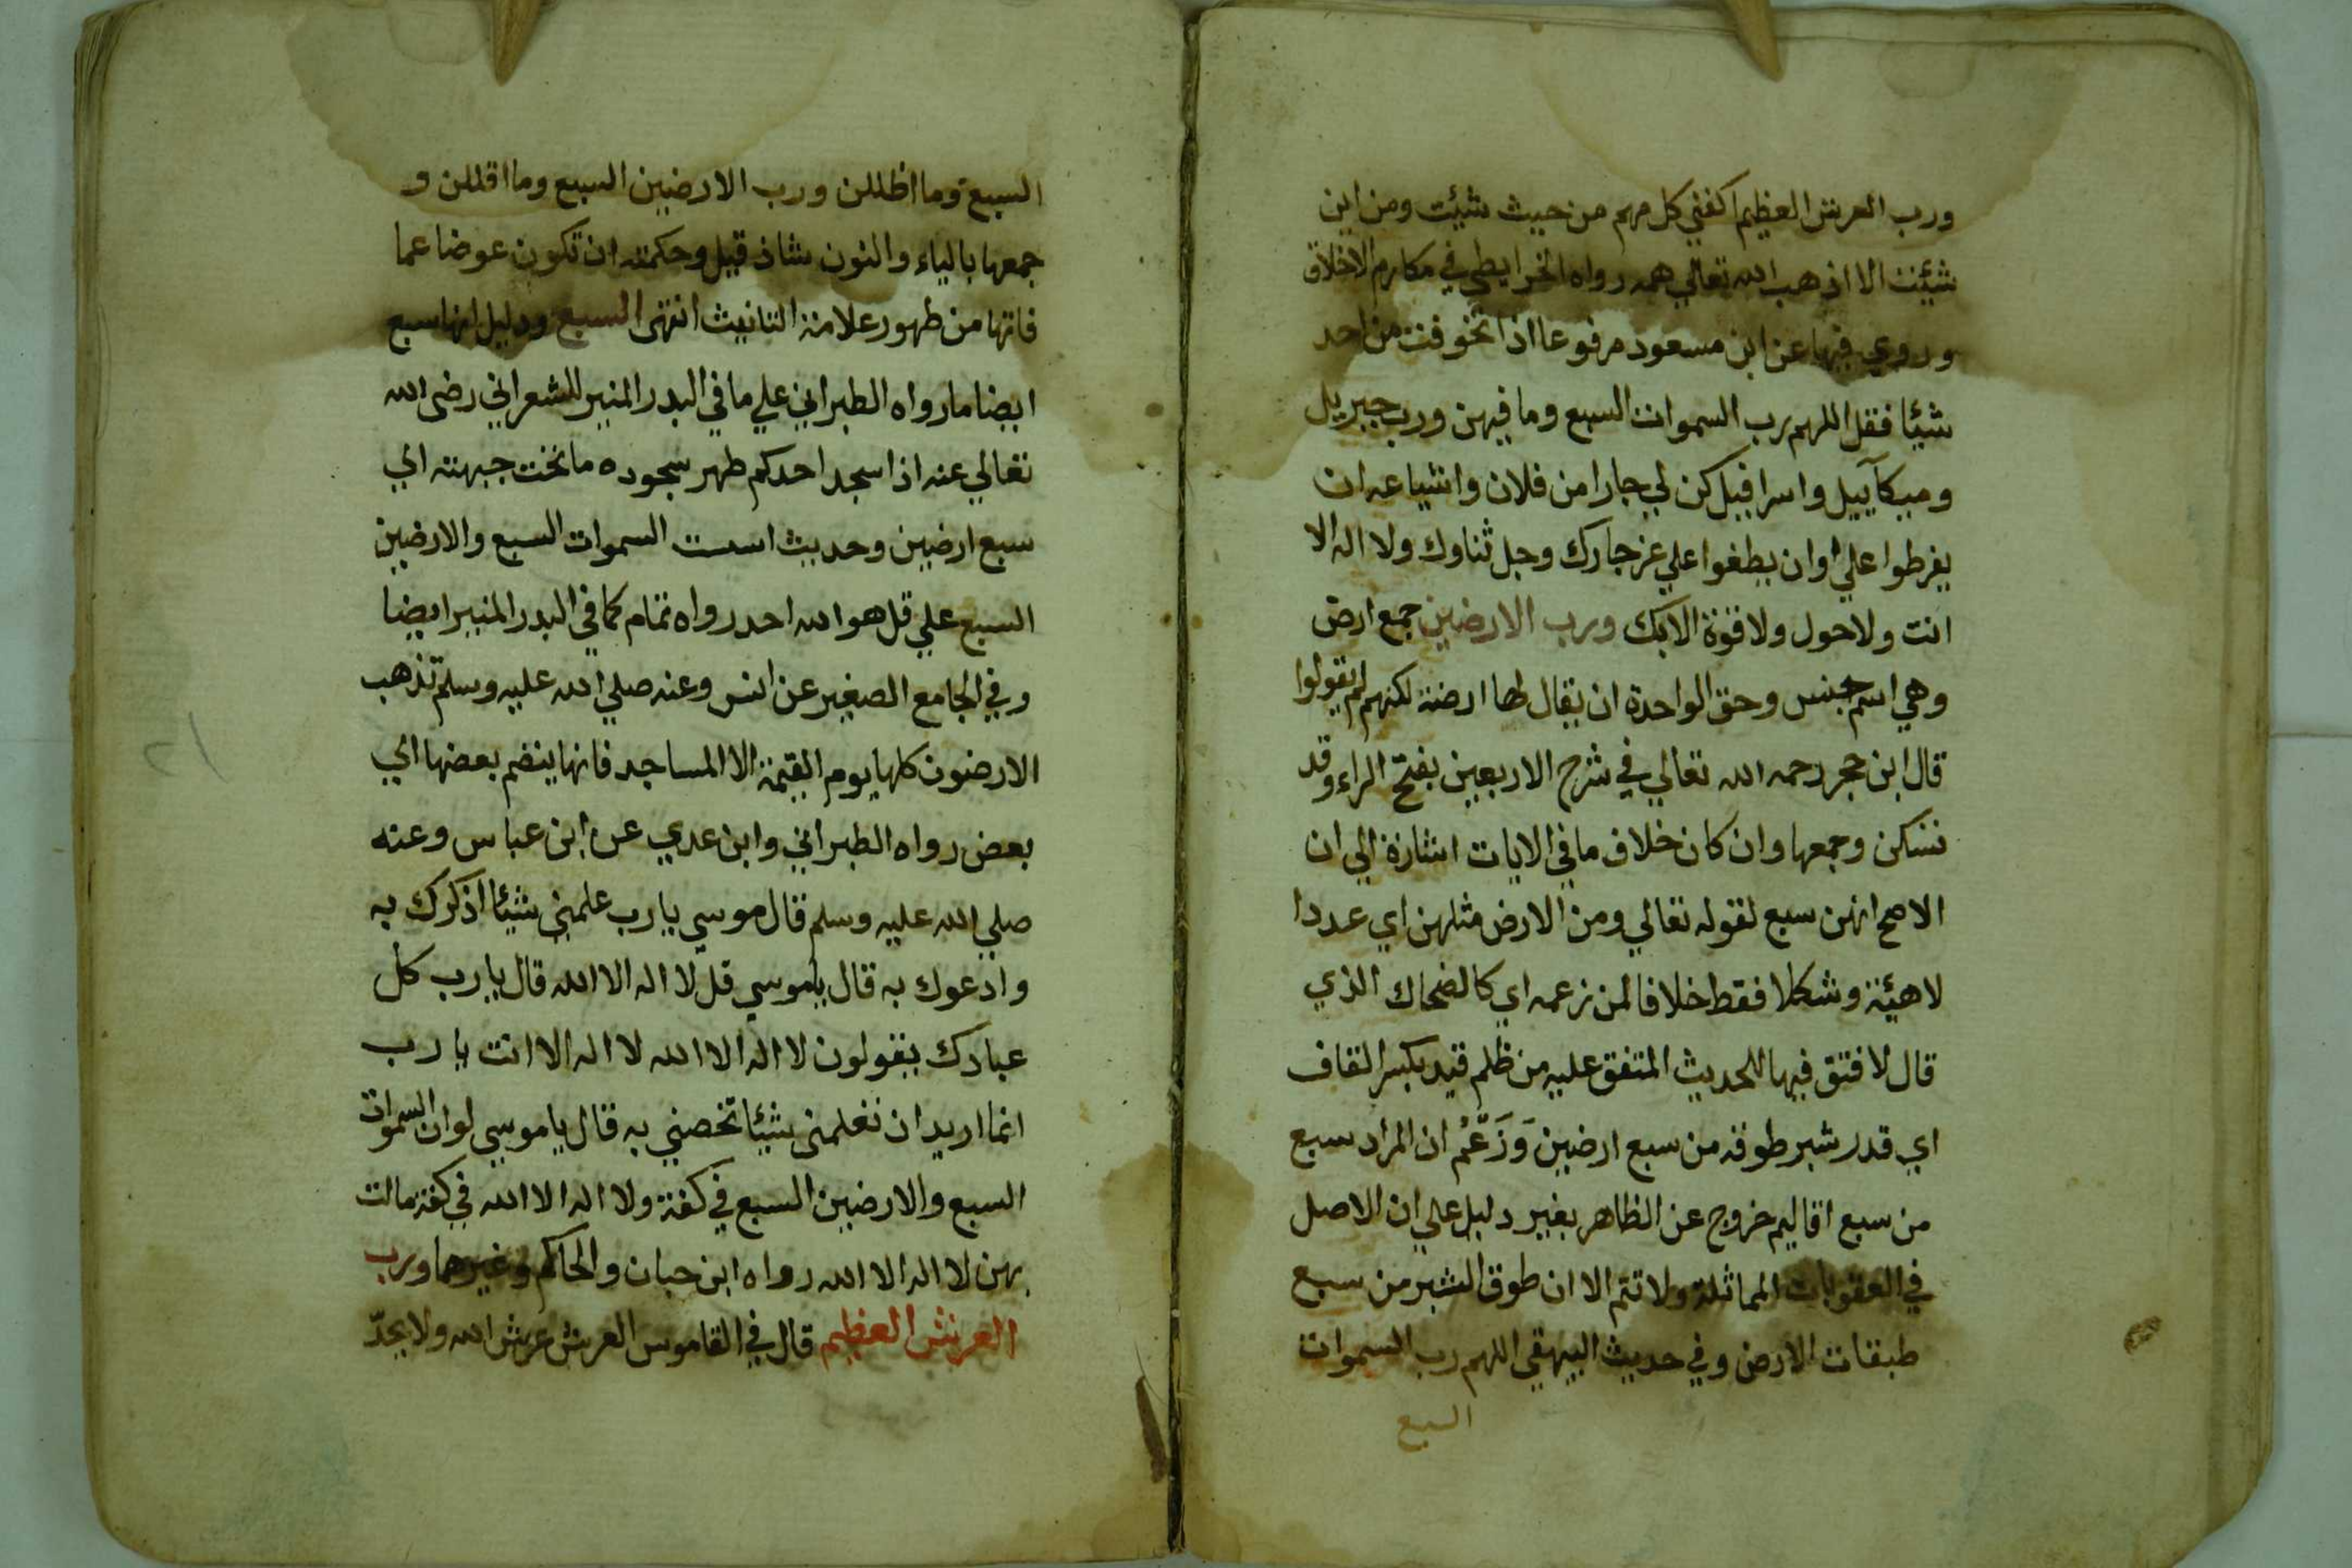 ورب العرش العظيم اكفني كل مهم من حيث شئت ومن اين
شئت الا اذهب الله تعالي همه رواه الخرايطي في مكارم الاخلاق
وروي فيها عن ابن مسعود مرفوعا اذا تخوفت من احد
شيئا فقل اللهم رب السموات السبع وما فيهن ورب جبريل
وميكآييل واسرافيل كن لي جارا من فلان واشياعه ان
يفرطوا علي او ان يطغوا علي عز جارك وجل ثناوك ولا اله الا
انت ولا حول ولا قوة الا بك ورب الارضين جمع ارض
وهي اسم جنس وحق الواحدة ان يقال لها ارضة لكنهم لم يقولوا
قال ابن حجر رحمه الله تعالي في شرح الاربعين بفتح الراء وقد
تسكن وجمعها وان كان خلاف ما في الايات اشارة الي ان
الاصح انهن سبع لقوله تعالي ومن الارض مثلهن اي عددا
لا هيئة وشكلا فقط خلافا لمن زعمه اي كالضحاك الذي
قال لا فتق فيها للحديث المتفق عليه من ظلم قيد بكسر القاف
اي قدر شبر طوقه من سبع ارضين وَزَعْمُ ان المراد سبع
من سبع اقاليم خروج عن الظاهر بغير دليل علي ان الاصل
في العقوبات المماثلة ولا تتم الا ان طوق الشبر من سبع
طبقات الارض وفي حديث البيهقي اللهم رب السموات
السبع
السبع وما اظللن ورب الارضين السبع وما اقللن و
جمعها بالياء والنون شاذ قيل وحكمته ان تكون عوضا عما
فاتها من ظهور علامة التانيث انتهى السبع ودليل انها سبع
ايضا ما رواه الطبراني علي ما في البدر المنير للشعراني رضى الله
تعالي عنه اذا سجد احدكم طهر سجوده ما تحت جبهته الي
سبع ارضين وحديث اسست السموات السبع والارضين
السبع علي قل هو الله احد رواه تمام كما في البدر المنير ايضا
وفي الجامع الصغير عن انس وعنه صلي الله عليه وسلم تذهب
الارضون كلها يوم القيمة الا المساجد فانها ينضم بعضها الي
بعض رواه الطبراني وابن عدي عن ابن عباس وعنه
صلي الله عليه وسلم قال موسي يا رب علمني شيئا اذكرك به
وادعوك به قال يا موسي قل لا اله الا الله قال يا رب كل
عبادك يقولون لا اله الا الله لا اله الا انت يا رب
انما اريد ان تعلمني شيئا تخصني به قال يا موسي لو ان السموات
السبع والارضين السبع في كفة ولا اله الا الله في كفة مالت
بهن لا اله الا الله رواه ابن حبان والحاكم وغيرهما ورب
العرش العظيم قال في القاموس العرش عرش الله ولا يحدّ